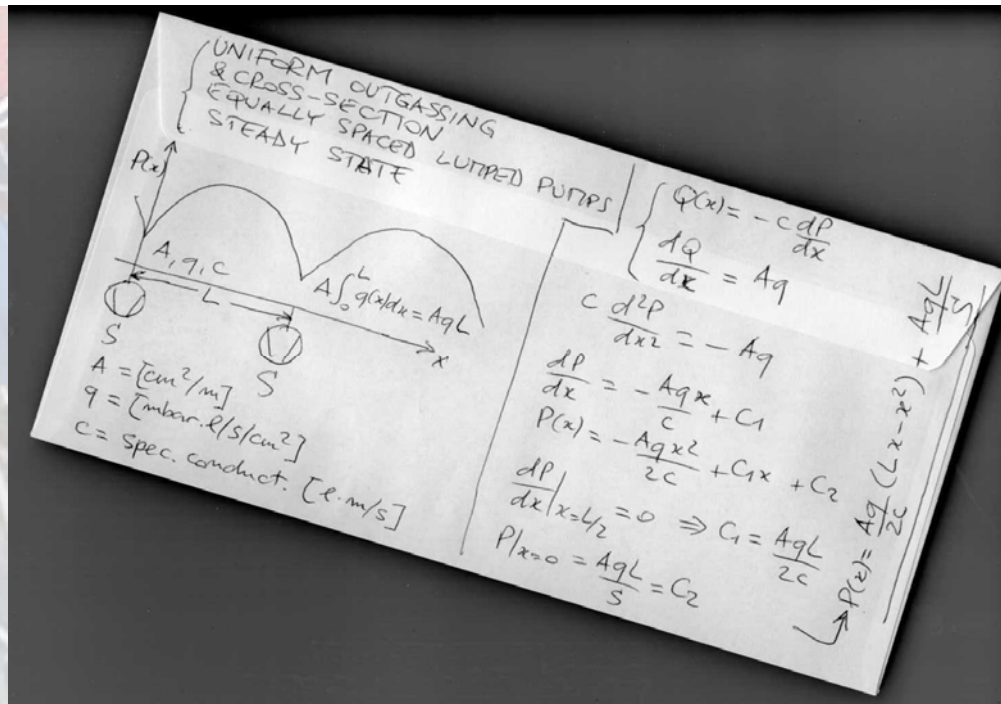 UNIFORM OUTGASSING
& CROSS-SECTION
EQUALLY SPACED LUMPED PUMPS
STEADY STATE
P(x)
A, q, c
L
A∫₀ᴸ q(x)dx = AqL
x
S
S
A = [cm²/m]
q = [mbar.l/s/cm²]
c = spec. conduct. [l.m/s]
Q(x) = -c dP/dx
dQ/dx = Aq
c d²P/dx² = - Aq
dP/dx = - Aqx/c + C₁
P(x) = - Aqx²/2c + C₁x + C₂
dP/dx|x=L/2 = 0 ⇒ C₁ = AqL/2c
P|x=0 = AqL/S = C₂
→ P(x) = Aq/2c (Lx - x²) + AqL/S